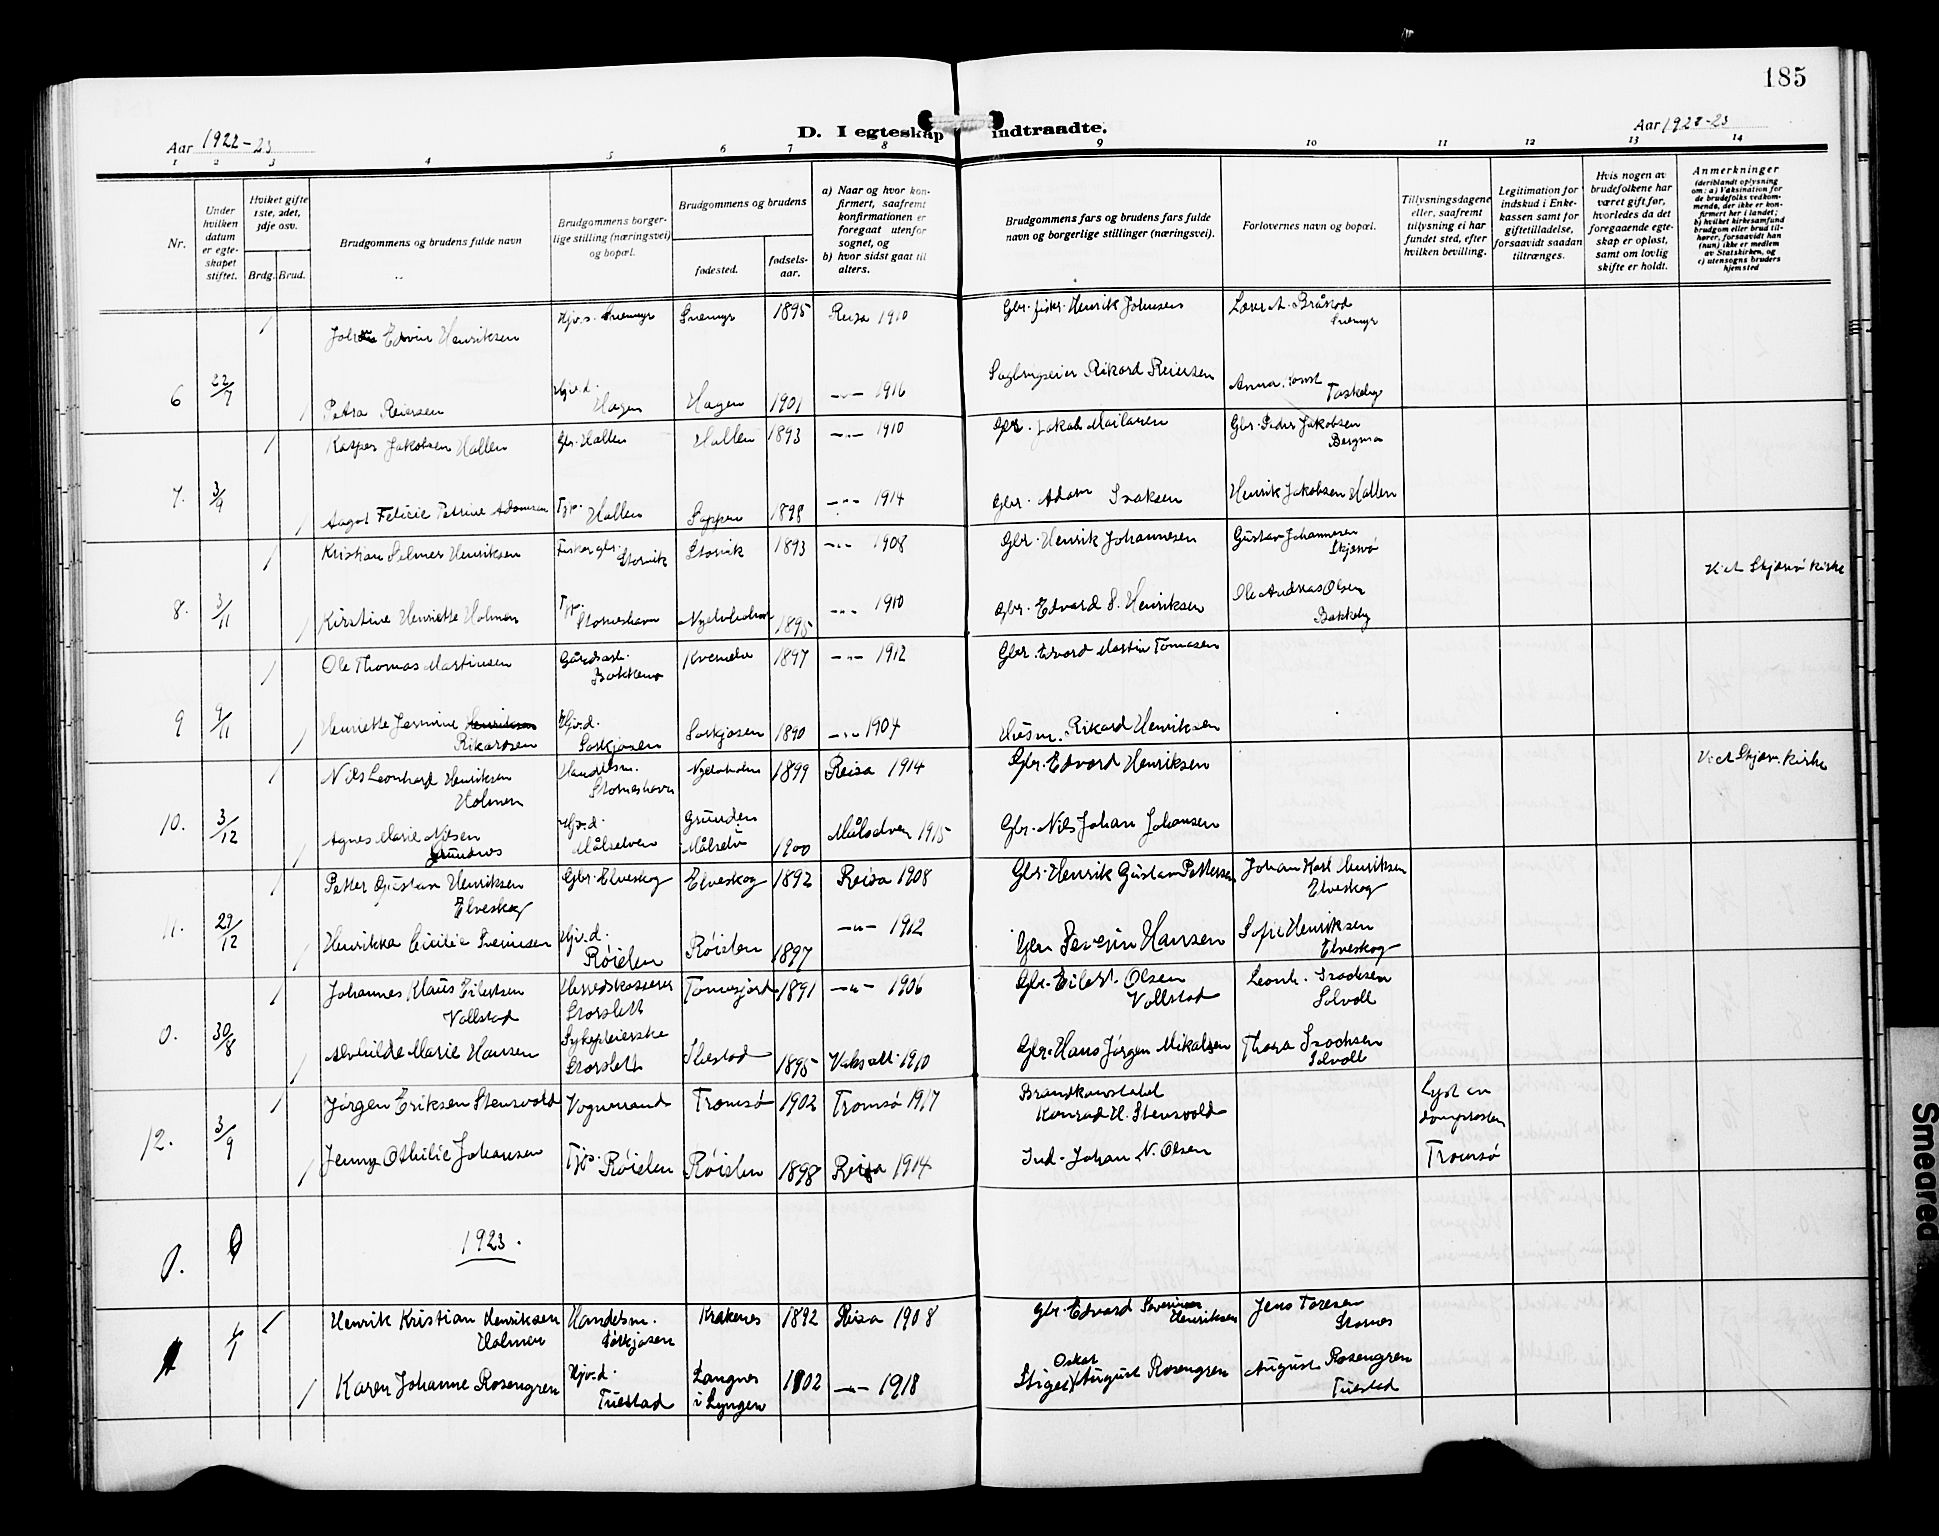 185
Aar 1922-23
D. I egteskap indtraadte.
Aar 1922-23
1 2 3 4 5 6 7 8 9 10 11 12 13 14
Nr.
Under hvilken datum er egteskapet stiftet.
Hvilket gifte 1ste, 2det, 3dje osv.
Brdg. Brud.
Brudgommens og brudens fulde navn
Brudgommens borgerlige stilling (næringsvei) og bopæl.
Brudgommens og brudens
fødested.
fødselsaar.
a) Naar og hvor konfirmert, saafremt konfirmationen er foregaat utenfor sognet, og
b) hvor sidst gaat til alters.
Brudgommens fars og brudens fars fulde navn og borgerlige stillinger (næringsvei).
Forlovernes navn og bopæl.
Tillysningsdagene eller, saafremt tillysning ei har fundet sted, efter hvilken bevilling.
Legitimation for indskud i Enkekassen samt for giftetilladelse, forsaavidt saadan tiltrænges.
Hvis nogen av brudefolkene har været gift før, hvorledes da det foregaaende egteskap er opløst, samt om lovlig skifte er holdt.
Anmerkninger (deriblandt oplysning om: a) Vaksination for de brudefolks vedkommende, der ikke er konfirmert her i landet; b) hvilket kirkesamfund brudgom eller brud tilhører, forsaavidt han (hun) ikke er medlem av Statskirken, og c) utensogns bruders hjemsted
Edvin Henriksen 1895 Reisa 1910 Gbr. fisker Henrik Johnsen
6 22/7 Petra Reiersen Hjv.d. Hagen Hagen 1901 -"- 1916 Rikard Reiersen Anna
Kasper Jakobsen Hallen Gbr. Hallen Hallen 1893 -"- 1910 Gbr. Gbr. Peder Jakobsen
7. 3/9 Aagot Felicie Petrine Adamsen Tjp. Hallen Sappen 1898 -"- 1914 Gbr. Adam Isaksen Henrik Jakobsen Hallen
Kristian Selmer Henriksen Fisker gbr. Storvik Storvik 1893 -"- 1908 Gbr. Henrik Johannesen Gustav Johannesen Skjervø
Viet Skjervø kirke
8. 3/11 Kirstine Henriette Holmen Tjp. 1895 -"- 1910 Gbr. Edvard S. Henriksen Ole Andreas Olsen Bakkeby
Ole Thomas Martinsen Gårdsarb. 1897 -"- 1912 Gbr. Edvard Martin Tomasen
9 9/11 Henriette Jasmine Henriksen Rikardsen Hjv.d. Sørkjosen Sørkjosen 1890 -"- 1904 Husm. Rikard Henriksen
Nils Leonhard Henriksen Holmen Handelsm. 1899 Reisa 1914 Gbr. Edvard Henriksen
Viet Skjerv. kirke
10. 3/12 Agnes Marie Nilsen Grundnes Hjv.d. Målselven Målselv 1900 Målselven 1915 Gbr. Nils Johan Johansen
Petter Gustav Henriksen Elveskog Gbr. Elveskog Elveskog 1892 Reisa 1908 Gbr. Henrik Gustav Pettersen Johan Karl Henriksen Elveskog
11. 29/12 Henrikka Cicilie Severinsen Hjv.d. Røielen Røielen 1897 -"- 1912 Gbr. Severin Hansen Sofie Henriksen Elveskog
Johannes Klaus Eilertsen Vollstad Herredskasserer Storslett 1891 -"- 1906 Gbr. Eilert Olsen Vollstad Leonh. Isachsen Solvoll
0. 30/8 Alvhilde Marie Hansen Sykepleierske Storslett 1895 1910 Gbr. Hans Jörgen Mikalsen Thora Isachsen Solvoll
Jörgen Eriksen Stensvold Vognmand Tromsø 1902 Tromsø 1917 Brandkonstabel Konrad H. Stensvold
Lyst av domprosten Tromsø
12. 3/9 Jenny Othilie Johansen Tjp. Røielen Røielen 1898 Reisa 1914 Ind. Johan N. Olsen
1923.
Henrik Kristian Henriksen Holmen Handelsm. Sørkjosen 1892 Reisa 1908 Gbr. Edvard Severin Henriksen Jens Toresen
Karen Johanne Rosengren Hjv.d. Tuestad Langnes i Lyngen 1902 -"- 1918 Oskar August Rosengren August Rosengren Tuestad
Smeared